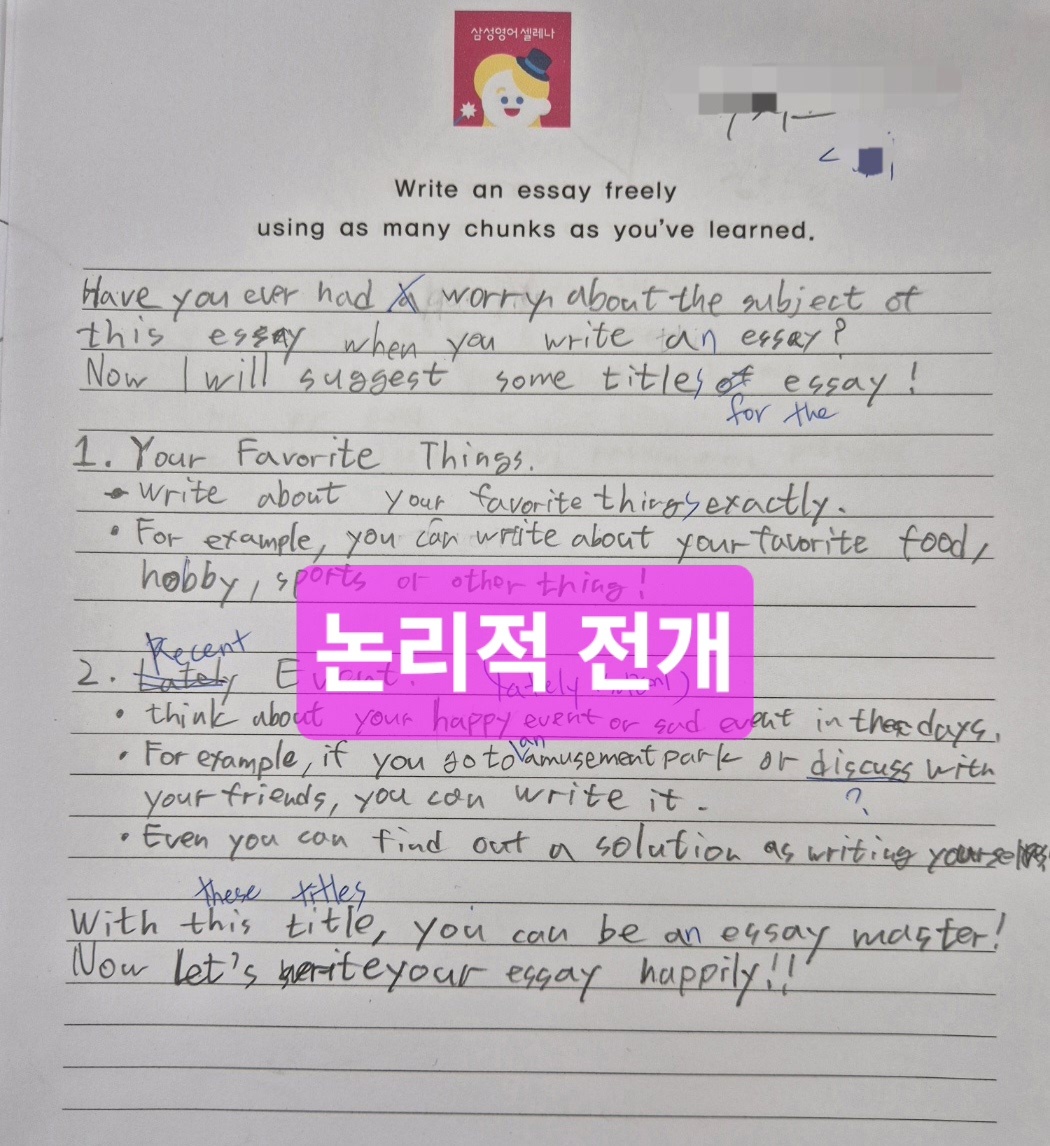 삼성영어 셀레나
Write an essay freely
using as many chunks as you've learned.
Have you ever had a worry about the subject of
this essay when you write an essay?
Now I will suggest some titles of essay!
for the
1. Your Favorite Things.
• Write about your favorite things exactly.
• For example, you can write about your favorite food,
hobby, sports or other thing!
논리적 전개
Recent
2. Lately Event.
lately
• think about your happy event or sad event in these days.
an
• For example, if you go to amusement park or discuss with
?
your friends, you can write it.
• Even you can find out a solution as writing yourselves
these titles
With this title, you can be an essay master!
Now let's write your essay happily!!